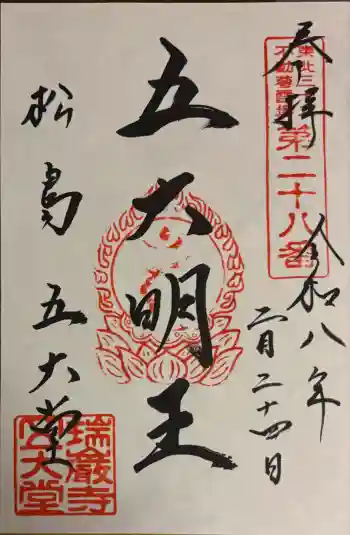 奉拝
東北三十六
不動尊霊場
第二十八番
令和八年
二月二十四日
五大明王
松島
五大堂
瑞巌寺
五大堂